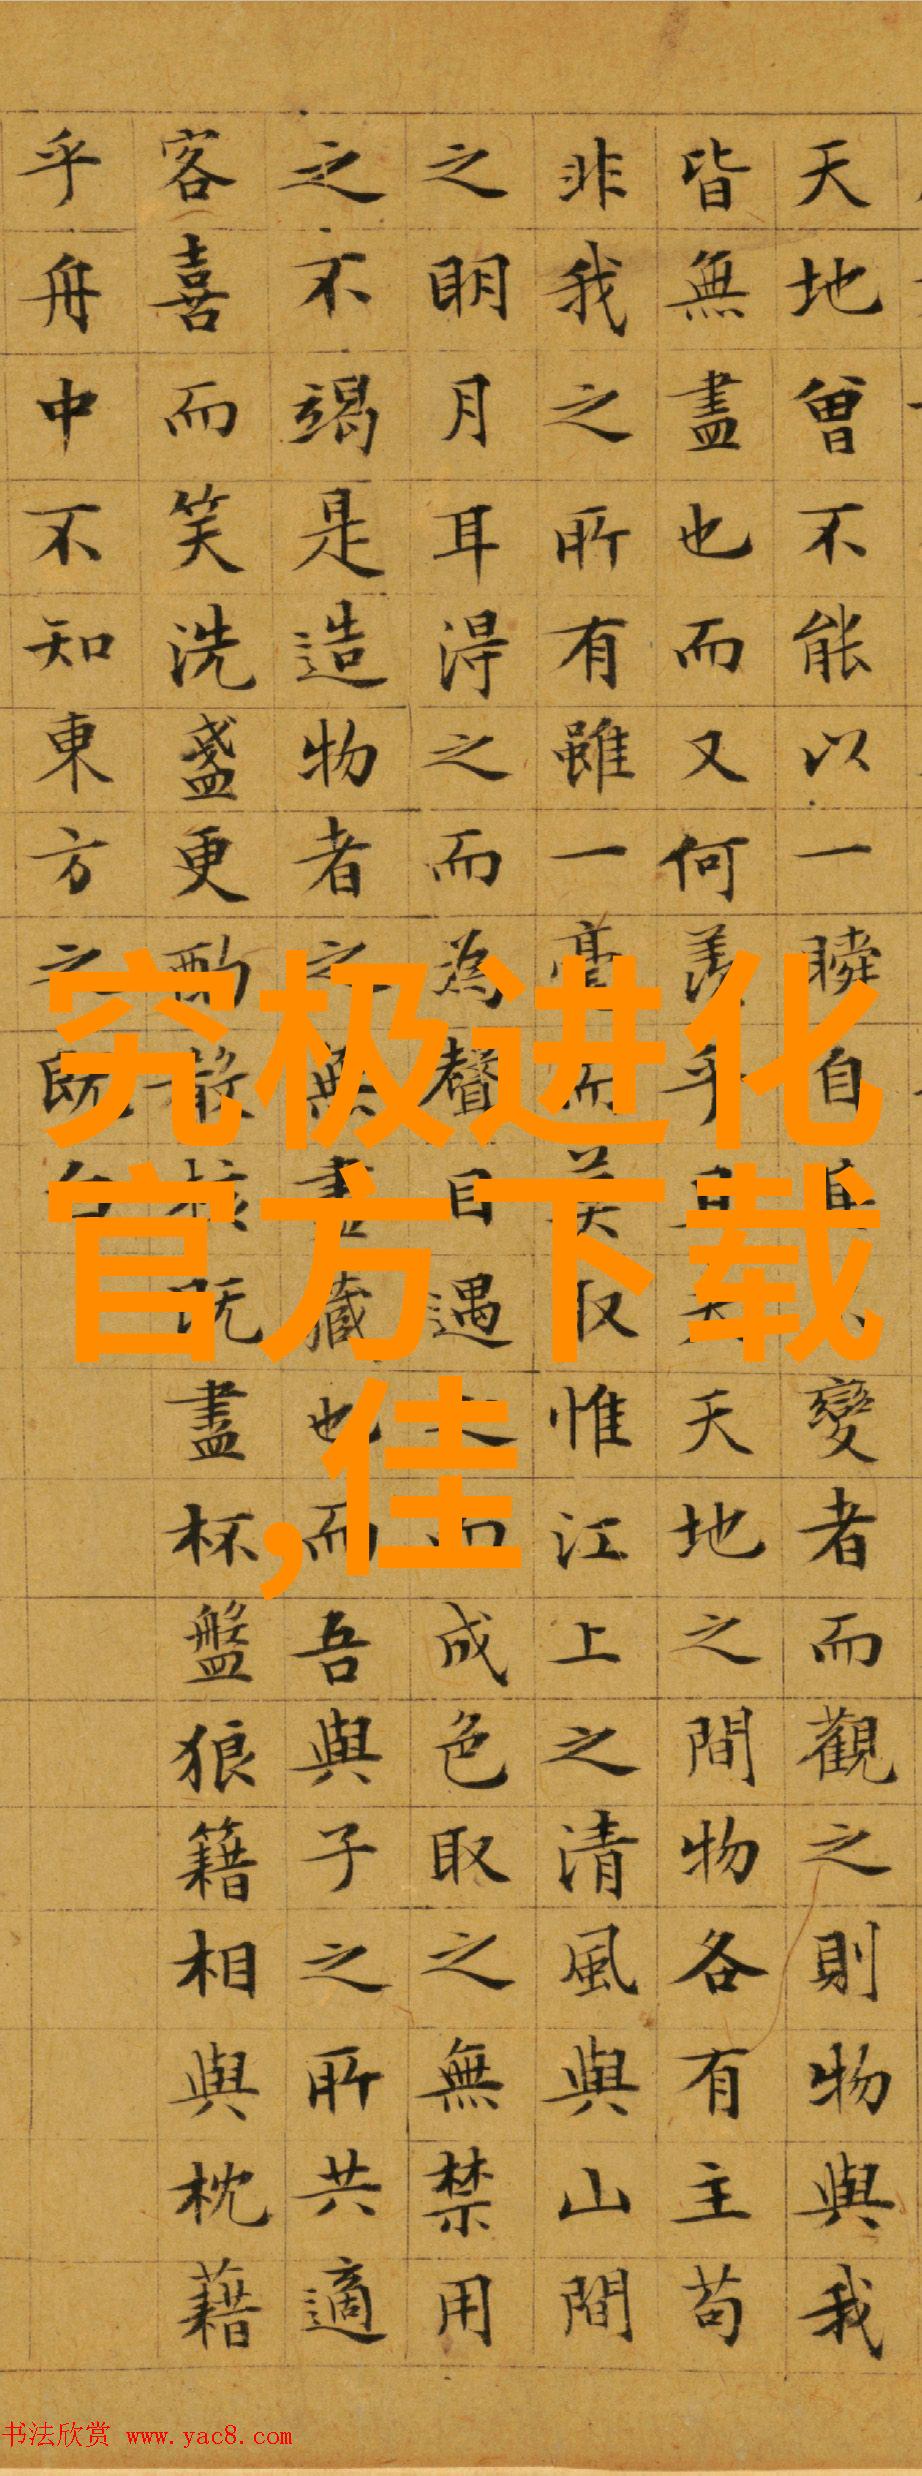 天地曾不能以一瞬自其不變者而觀之則物與我
皆無盡也而又何羨乎且夫天地之間物各有主苟
非我之所有雖一毫而莫取惟江上之清風與山間
之明月耳得之而為聲目遇之而成色取之無禁用
之不竭是造物者之無盡藏也而吾與子之所共適
客喜而笑洗盞更酌殽核既盡杯盤狼籍相與枕藉
乎舟中不知東方之既白
究极进化
官方下载
,佳
书法欣赏 www.yac8.com